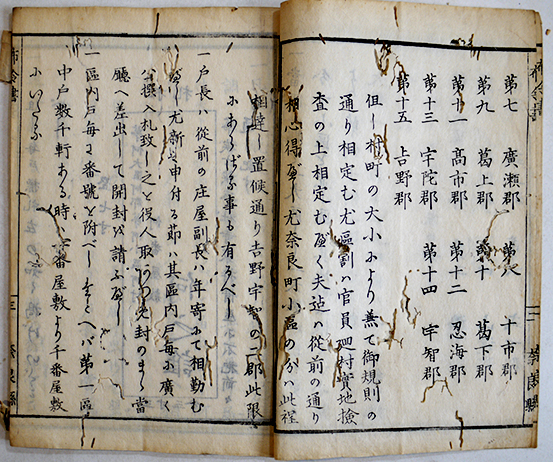 第七 廣瀬郡 第八 十市郡
第九 葛上郡 第十 葛下郡
第十一 高市郡 第十二 忍海郡
第十三 宇陀郡 第十四 宇智郡
第十五 吉野郡
但し村町の大小により兼て御規則の
通り相定む尤區割ハ官員廻村實地撿
査の上相定むべく夫迠ハ従前の通り
相心得べし尤奈良町小區の分ハ此程
相達し置候通り吉野宇智の二郡此限
にあらざる事も有るべし
一戸長ハ従前の庄屋副長ハ年寄にて相勤む
べし尤新に申付る節ハ其區内戸毎に廣く
公撰入札致し之と役人取 封のまゝ當
廳へ差出して開封を請ふべし
一區内戸毎に番號を附べし たとへバ第一區
中戸数千軒ある時ハ一番屋敷より千番屋敷
にいたる
三 奈良縣